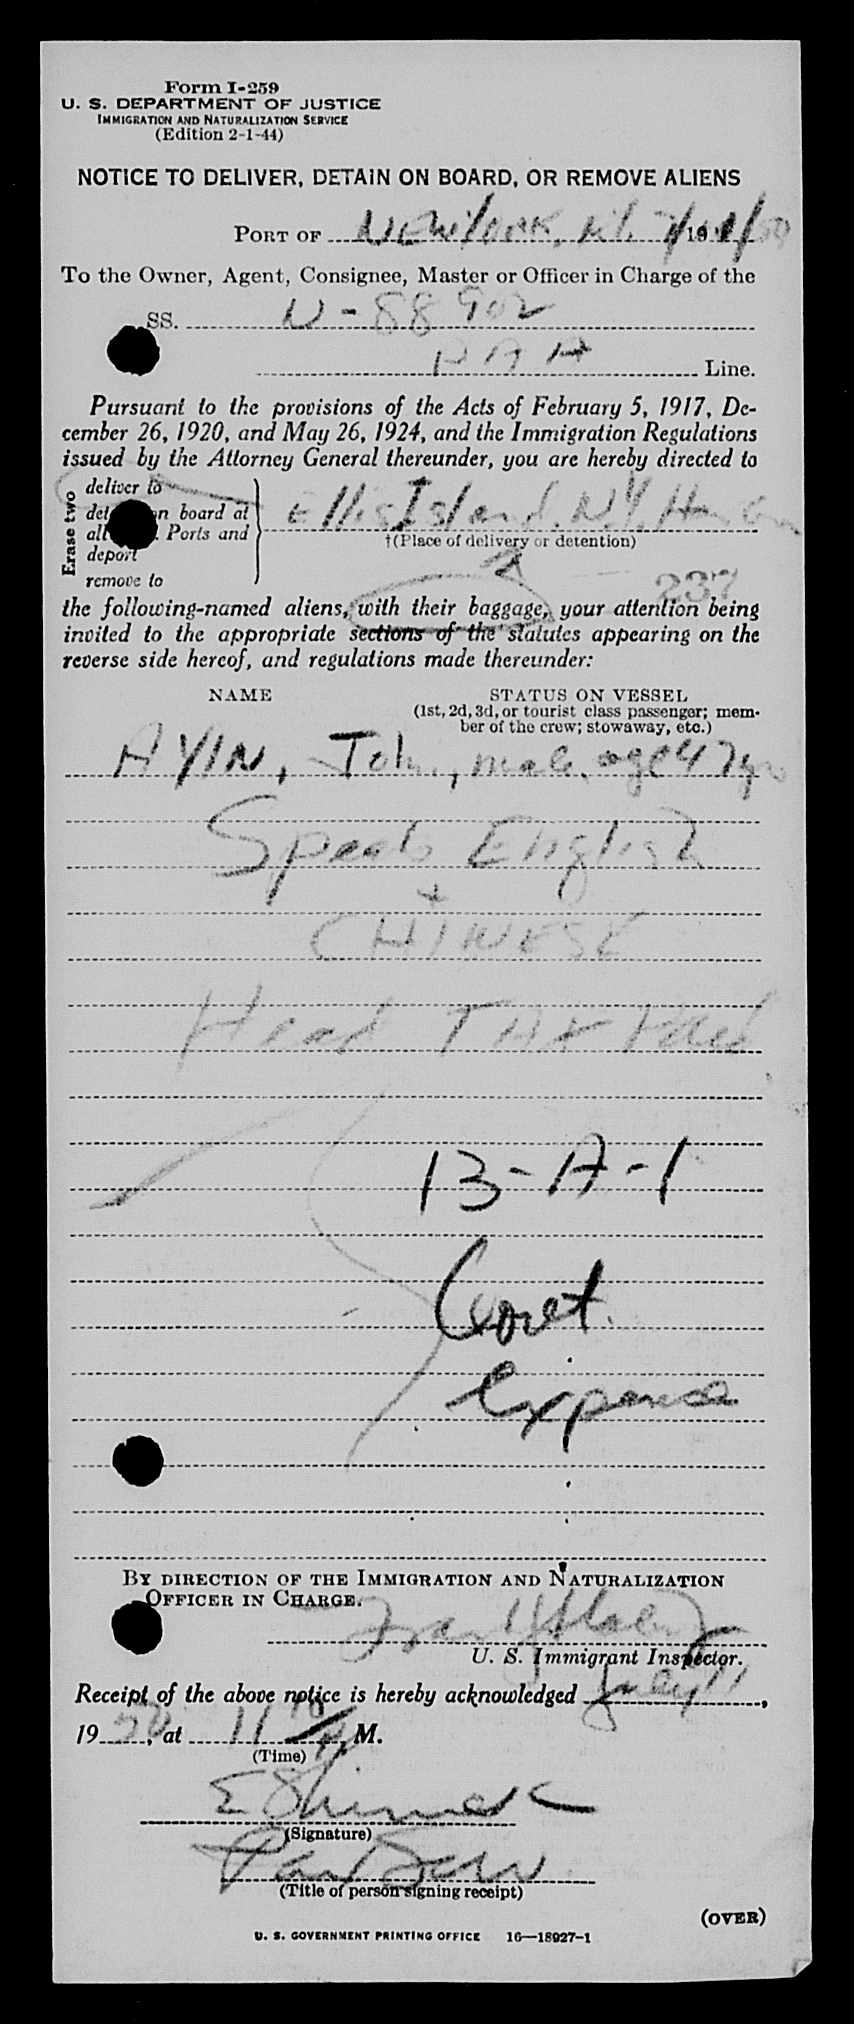 Form I-259
U. S. DEPARTMENT OF JUSTICE
IMMIGRATION AND NATURALIZATION SERVICE
(Edition 2-1-44)
NOTICE TO DELIVER, DETAIN ON BOARD, OR REMOVE ALIENS
PORT OF NEW YORK, N.Y. 7/11/50
To the Owner, Agent, Consignee, Master or Officer in Charge of the
SS. N-88902
PAA Line.
Pursuant to the provisions of the Acts of February 5, 1917, De-
cember 26, 1920, and May 26, 1924, and the Immigration Regulations
issued by the Attorney General thereunder, you are hereby directed to
Erase two
deliver to
det n board at
all Ports and
deport
remove to
Ellis Island, N.Y. Har
†(Place of delivery or detention)
237
the following-named aliens, with their baggage, your attention being
invited to the appropriate sections of the statutes appearing on the
reverse side hereof, and regulations made thereunder:
NAME STATUS ON VESSEL
(1st, 2d, 3d, or tourist class passenger; mem-
ber of the crew; stowaway, etc.)
AYIN, John, male, age 47 yrs
Speaks English
+
CHINESE
Head TAX Paid
13-A-1
Govt.
Expense
BY DIRECTION OF THE IMMIGRATION AND NATURALIZATION
OFFICER IN CHARGE.
U. S. Immigrant Inspector.
Receipt of the above notice is hereby acknowledged July 11,
1950, at 11 10 A M.
(Time)
(Signature)
(Title of person signing receipt)
(OVER)
U. S. GOVERNMENT PRINTING OFFICE 16—18927-1